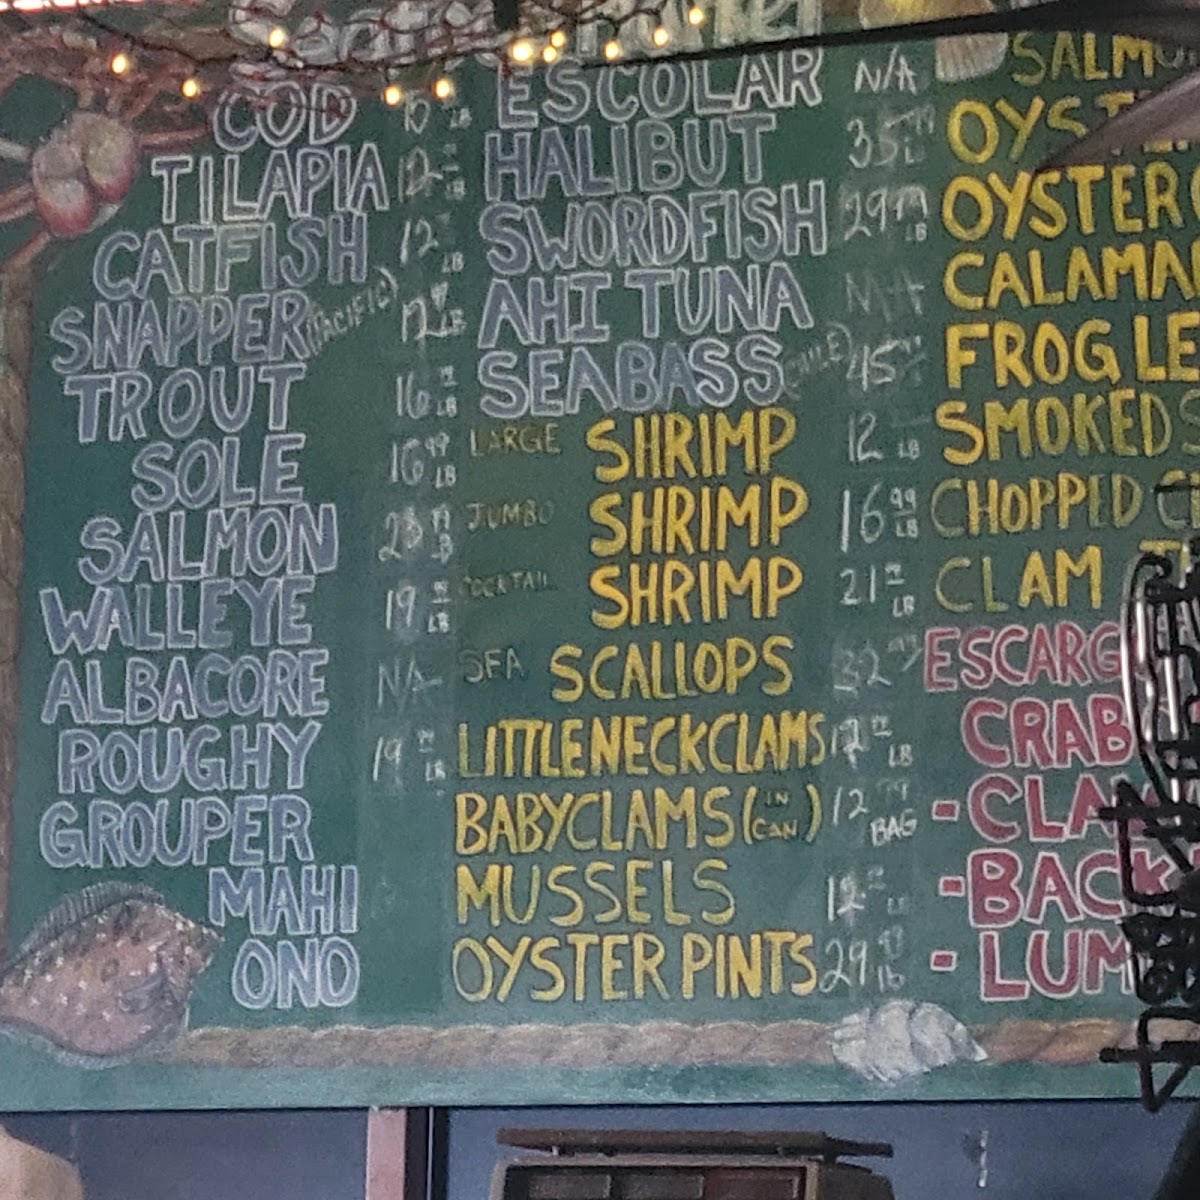 COD
TILAPIA 12 LB
CATFISH 12 LB
SNAPPER (PACIFIC) 12 LB
TROUT 16 LB
SOLE 16 99 LB
SALMON 23 LB
WALLEYE 19 LB
ALBACORE N/A
ROUGHY 19 LB
GROUPER
MAHI
ONO
ESCOLAR N/A
HALIBUT 35 LB
SWORDFISH 29 99 LB
AHI TUNA
SEABASS 45
LARGE SHRIMP 12 LB
JUMBO SHRIMP 16 99 LB
COCKTAIL SHRIMP 21 LB
SEA SCALLOPS 32 99
LITTLENECK CLAMS 12 LB
BABY CLAMS (IN CAN) 12 99 BAG
MUSSELS 12
OYSTER PINTS 29 LB
OYSTER
CALAMA
FROG LE
SMOKED S
CHOPPED
CLAM
ESCARG
CRAB
- CLA
- BACK
- LUM